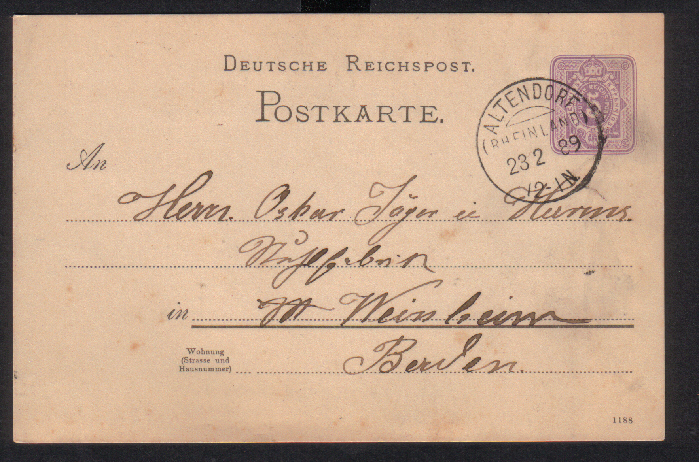 DEUTSCHE REICHSPOST.
POSTKARTE.
ALTENDORF
(RHEINLAND)
23 2 89
12-1N
An
Herrn. Oskar Jäger u
Stuhlfabrik
in Weinheim
Wohnung
(Strasse und
Hausnummer)
Baden.
1188